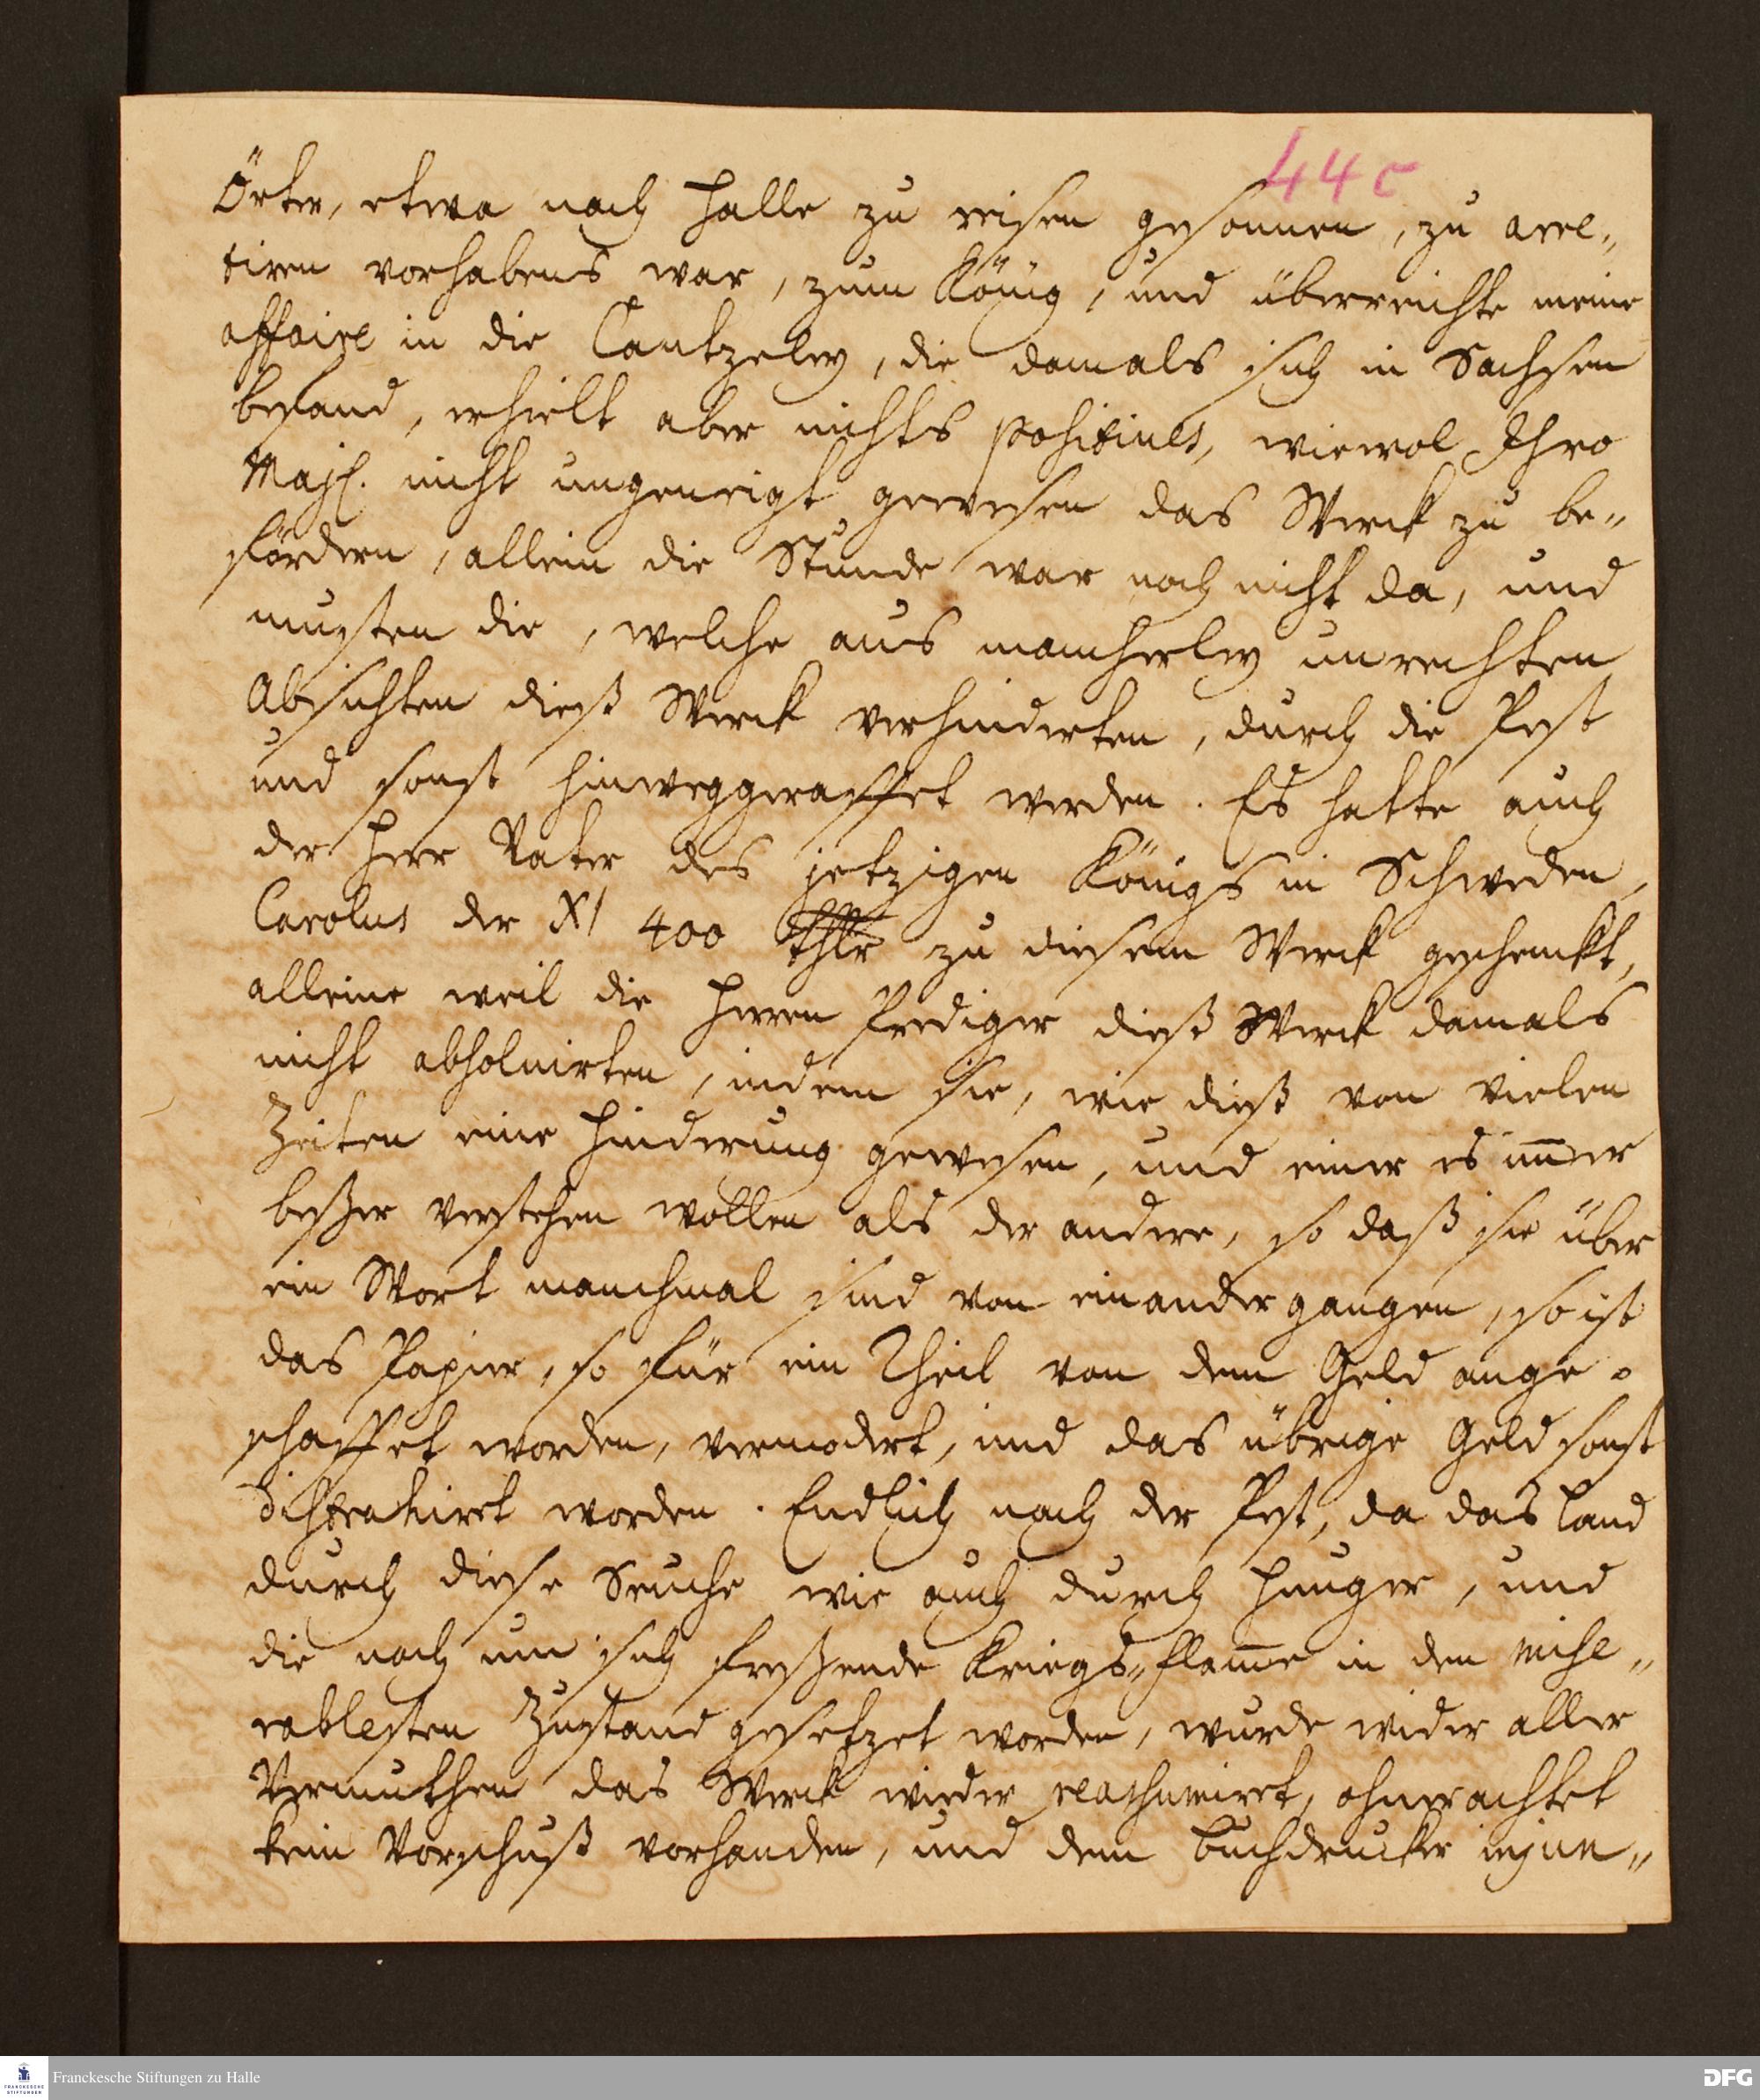 44c
Örter, etwa nach Halle zu reisen gesonnen, zu arre„
tiren vorhabens war, zum König, und überreichte meine
affaire in die Cantzeley, die damals sich in Sachsen
befand, erhielt aber nichts positives, wiewol Ihro
Majſ. nicht ungeneigt gewesen das Werck zu be„
fördern, allein die Stunde war noch nicht da, und
musten die, welche aus mancherley unrechten
Absichten dieß Werck verhinderten, durch die Pest
und sonst hinweggeraffet werden. Es hatte auch
der Herr Vater des jetzigen Königs in Schweden,
Carolus der XI 400 thlr zu diesem Werck geschenckt,
alleine weil die Herren Prediger dieß Werck damals
nicht absolvirten, indem sie, wie dieß von vielen
Zeiten eine Hinderung gewesen, und einer es im̄er
beßer verstehen wollen als der andere, so daß sie über
ein Wort manchmal sind von einander gangen, so ist
das Papier, so für ein Theil von dem Geld ange„
schaffet worden, vermodert, und das übrige Geld sonst
distrahirt worden. Endlich nach der Pest, da das Land
durch diese Seuche wie auch durch Hunger, und
die noch um sich freßende Kriegs„Flam̄e in den mise„
rablesten Zustand gesetzet worden, wurde wider aller
Vermuthen das Werck wieder reassumirt, ohnerachtet
kein Vorschuß vorhanden, und dem Buchdrucker injun„
Franckesche Stiftungen zu Halle
FRANCKESCHE STIFTUNGEN
DFG